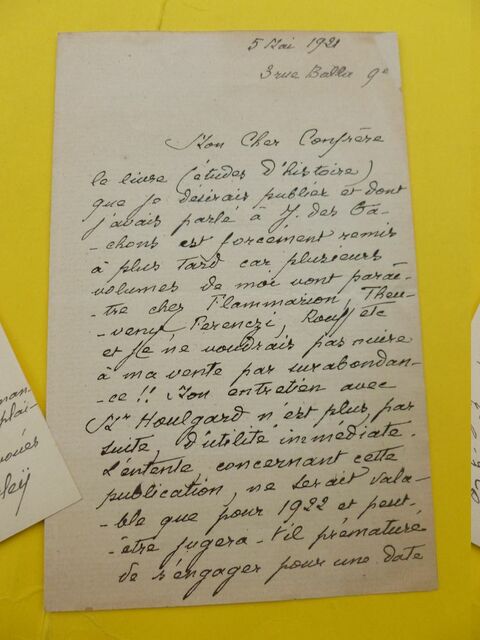 5 Mai 1921
3 rue Ballu 9e
Mon Cher Confrère
le livre (études d'histoire)
que je désirais publier et dont
j'avais parlé à J. des Ga-
-chons est forcément remis
à plus tard car plusieurs
volumes de moi vont paraî-
-tre chez Flammarion, Theu-
-veny Ferenczi, Rouff etc
et je ne voudrais pas nuire
à ma vente par surabondan-
-ce !! Mon entretien avec
Mr Houlgard n'est plus, par
suite, d'utilité immédiate.
L'entente, concernant cette
publication, ne serait vala-
-ble que pour 1922 et peut-
-être jugera-t'il prématuré
de s'engager pour une date
man-
plai-
oués